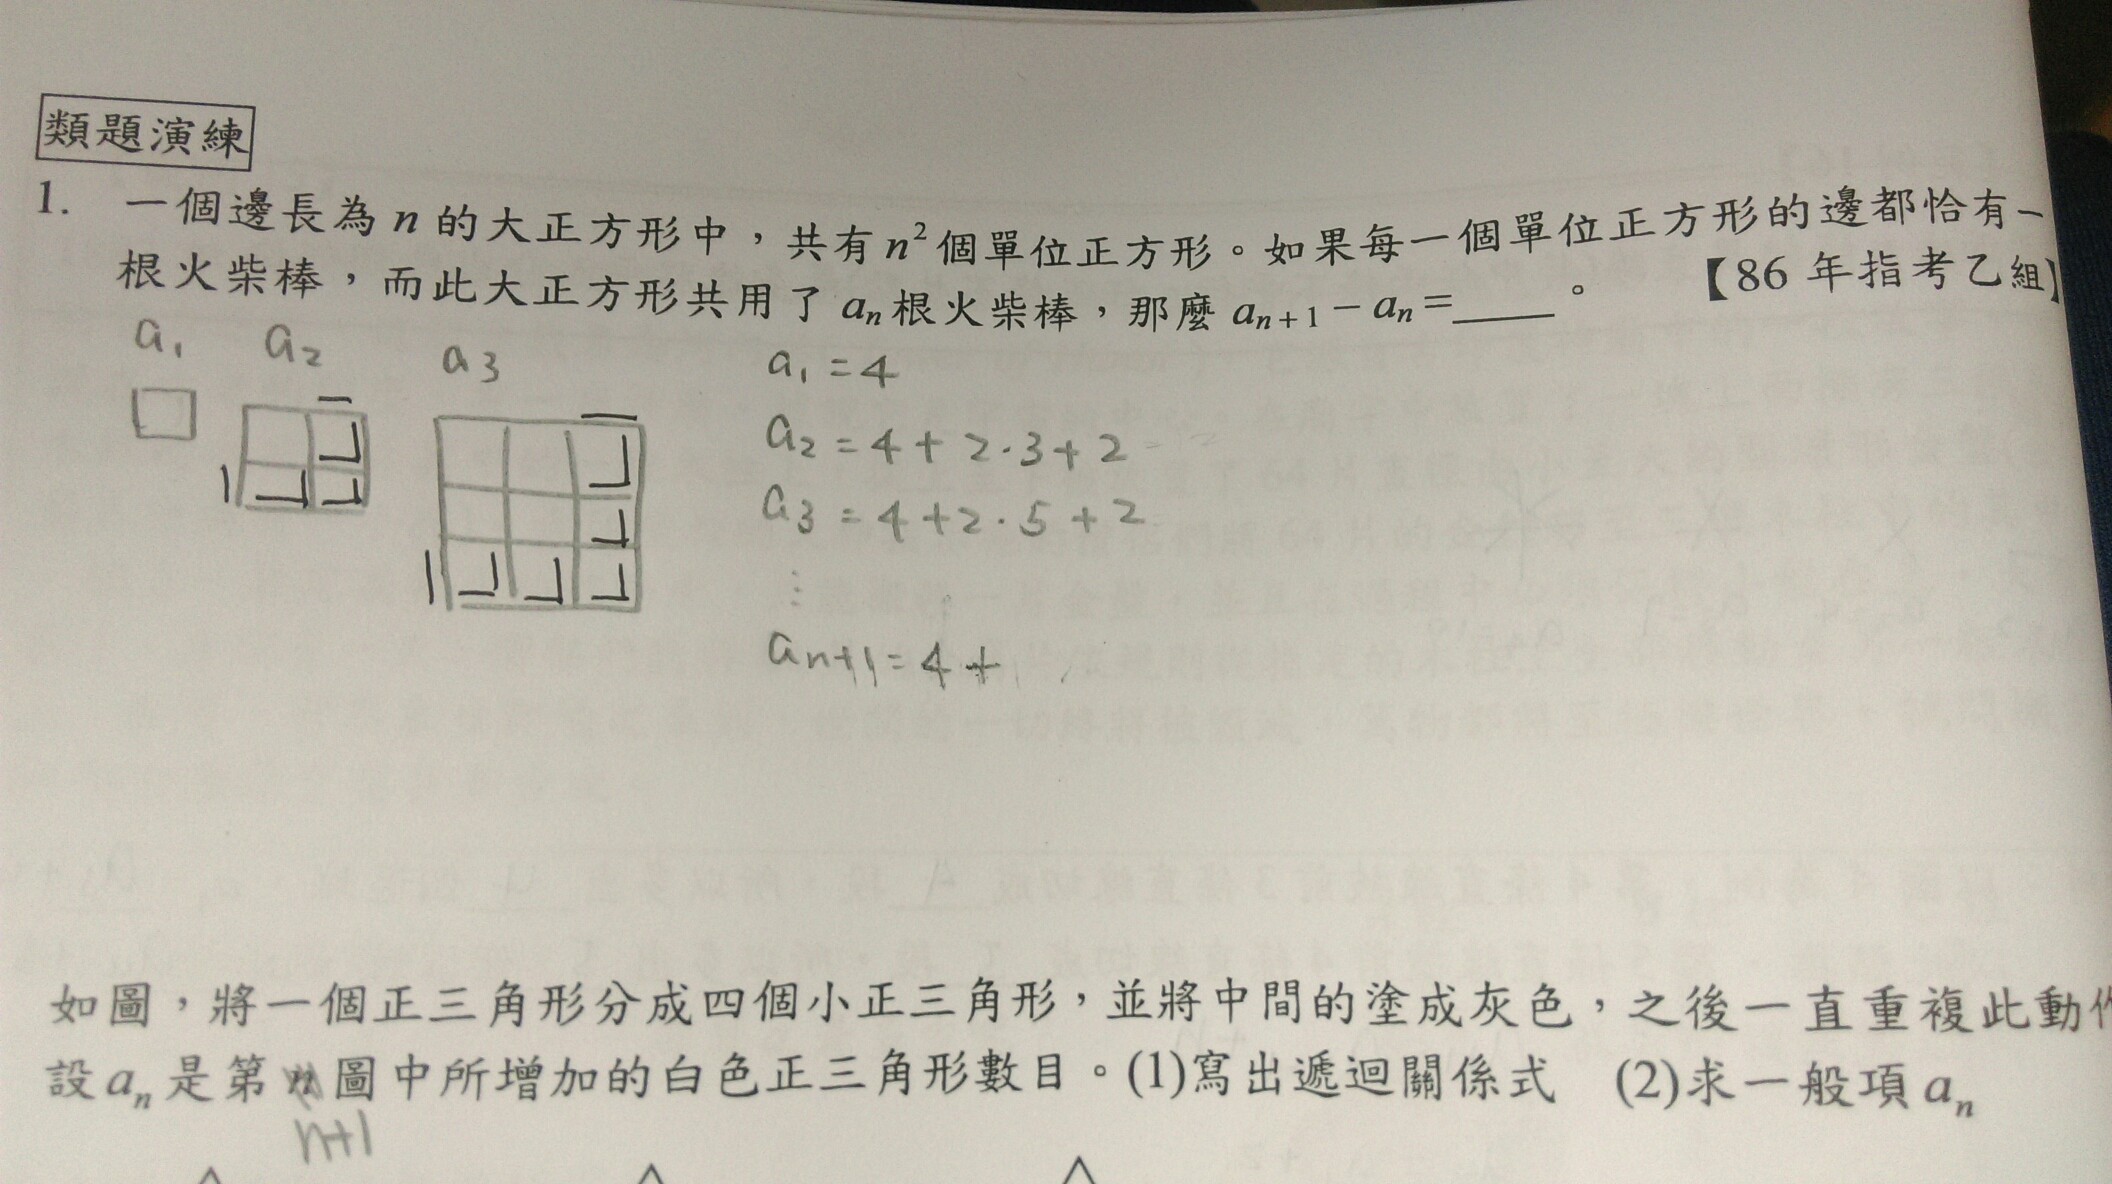 類題演練
1. 一個邊長為 n 的大正方形中，共有 n² 個單位正方形。如果每一個單位正方形的邊都恰有一
根火柴棒，而此大正方形共用了 aₙ 根火柴棒，那麼 aₙ₊₁ − aₙ = ____。 【86 年指考乙組】
a₁ a₂ a₃
a₁ = 4
a₂ = 4 + 2·3 + 2
a₃ = 4 + 2·5 + 2
⋮
aₙ₊₁ = 4 +
如圖，將一個正三角形分成四個小正三角形，並將中間的塗成灰色，之後一直重複此動作
設 aₙ 是第 n 圖中所增加的白色正三角形數目。(1)寫出遞迴關係式 (2)求一般項 aₙ
n+1